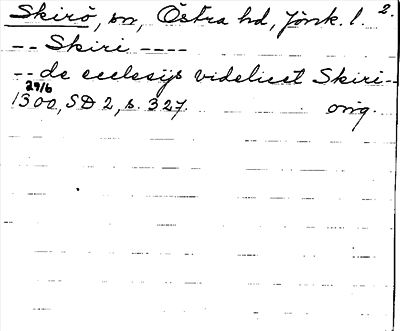 Skirö, sn, Östra hd, Jönk. l. 2.
-- Skiri ----
-- de ecclesijs videlicet Skiri --
29/6
1300, SD 2, s. 327. orig.